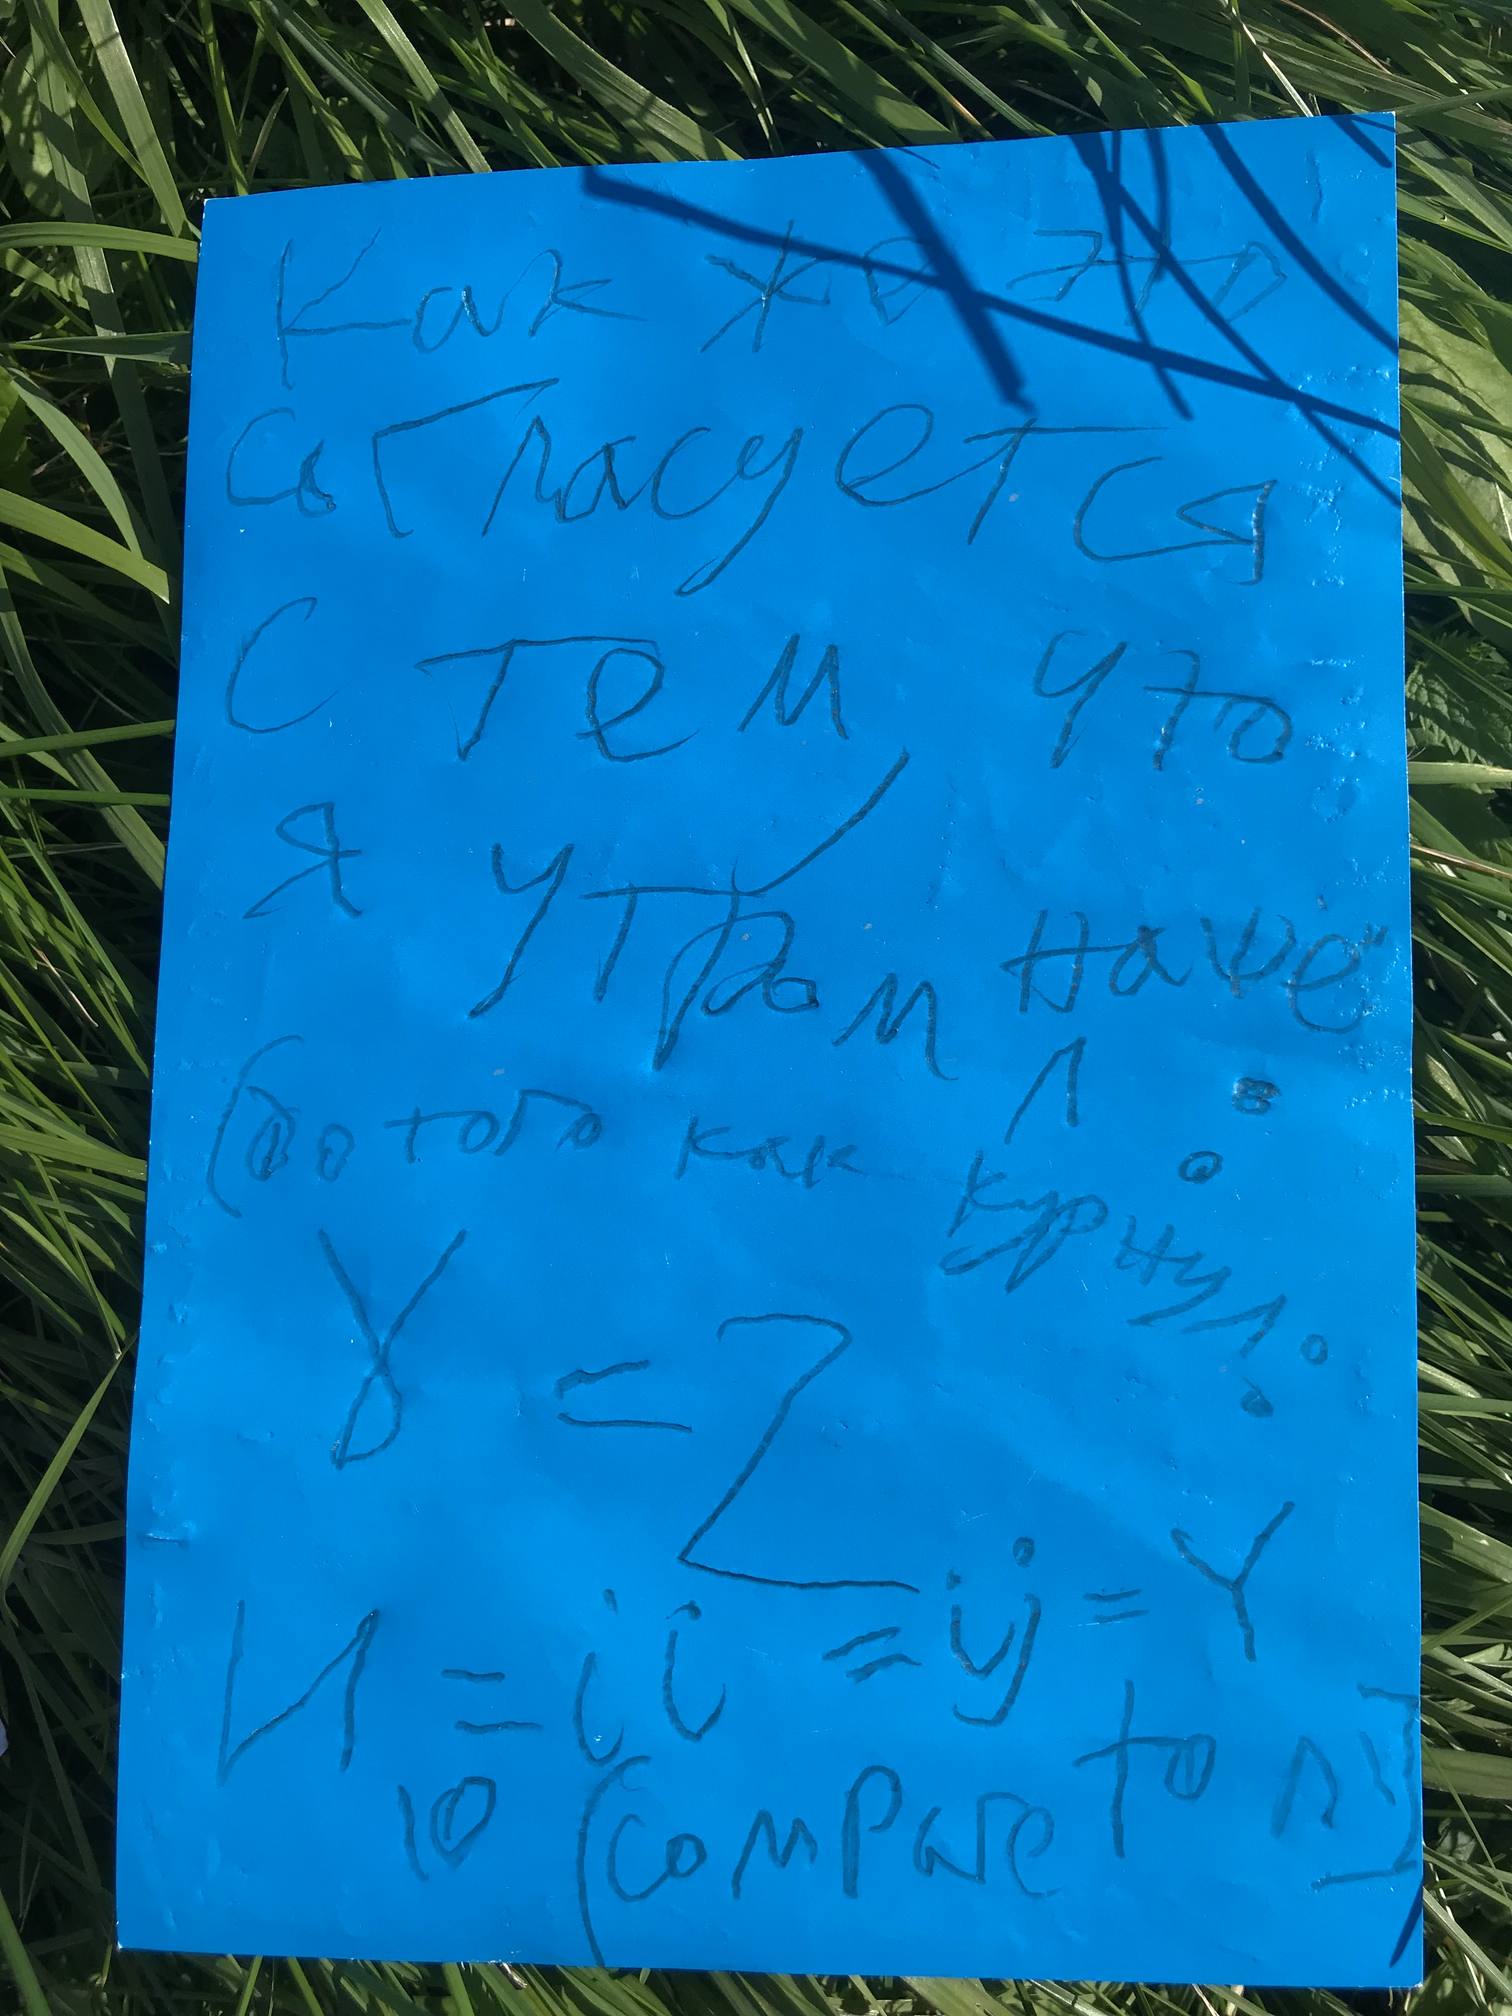 Как же это
согласуется
с тем что
я утром, наше
л :
(до того как курнул:
γ = Z
И = ij = ij = Y
10 (compare to